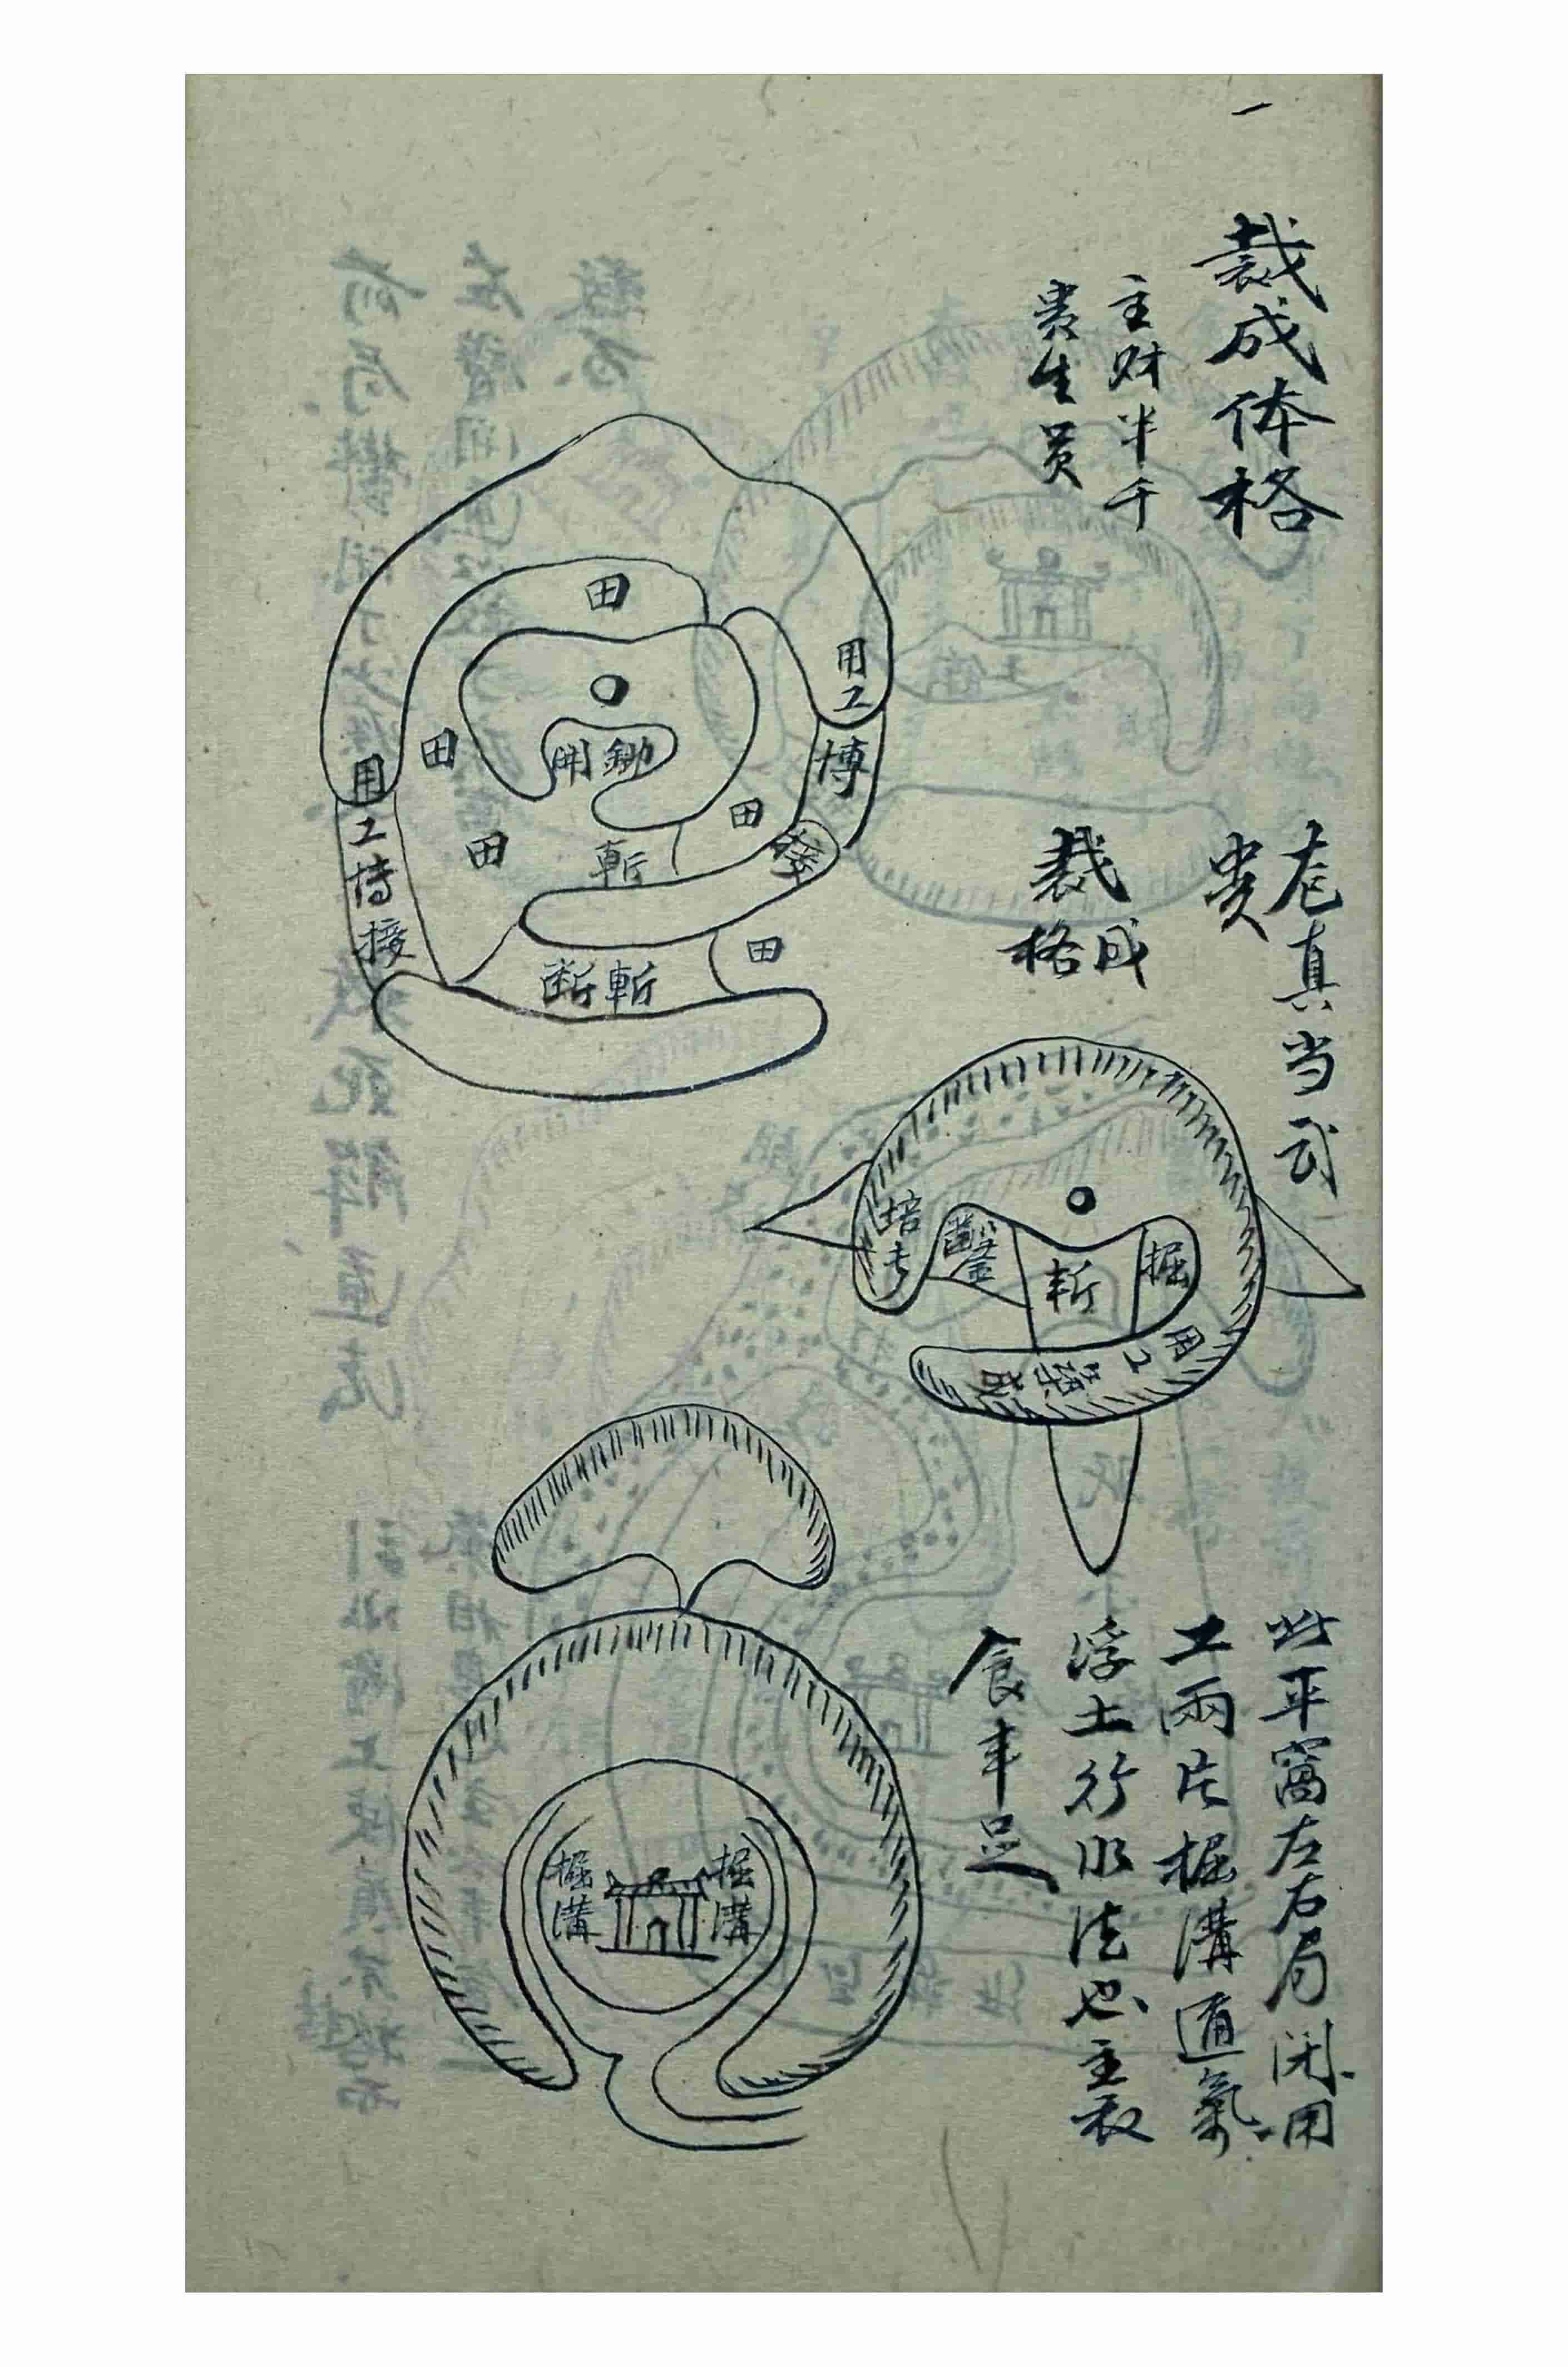 一
裁成体格
主财半千
贵生员
田
用工
田
開鋤
博
用工
博接
田
接
田
斬
田
斬断
裁成
格
真当武
贵
培
鑿
斬
掘
用工築成
此平窩左右局閉用
工兩片掘溝通氣
浮土行水法也主衣
食丰足
掘溝
掘溝